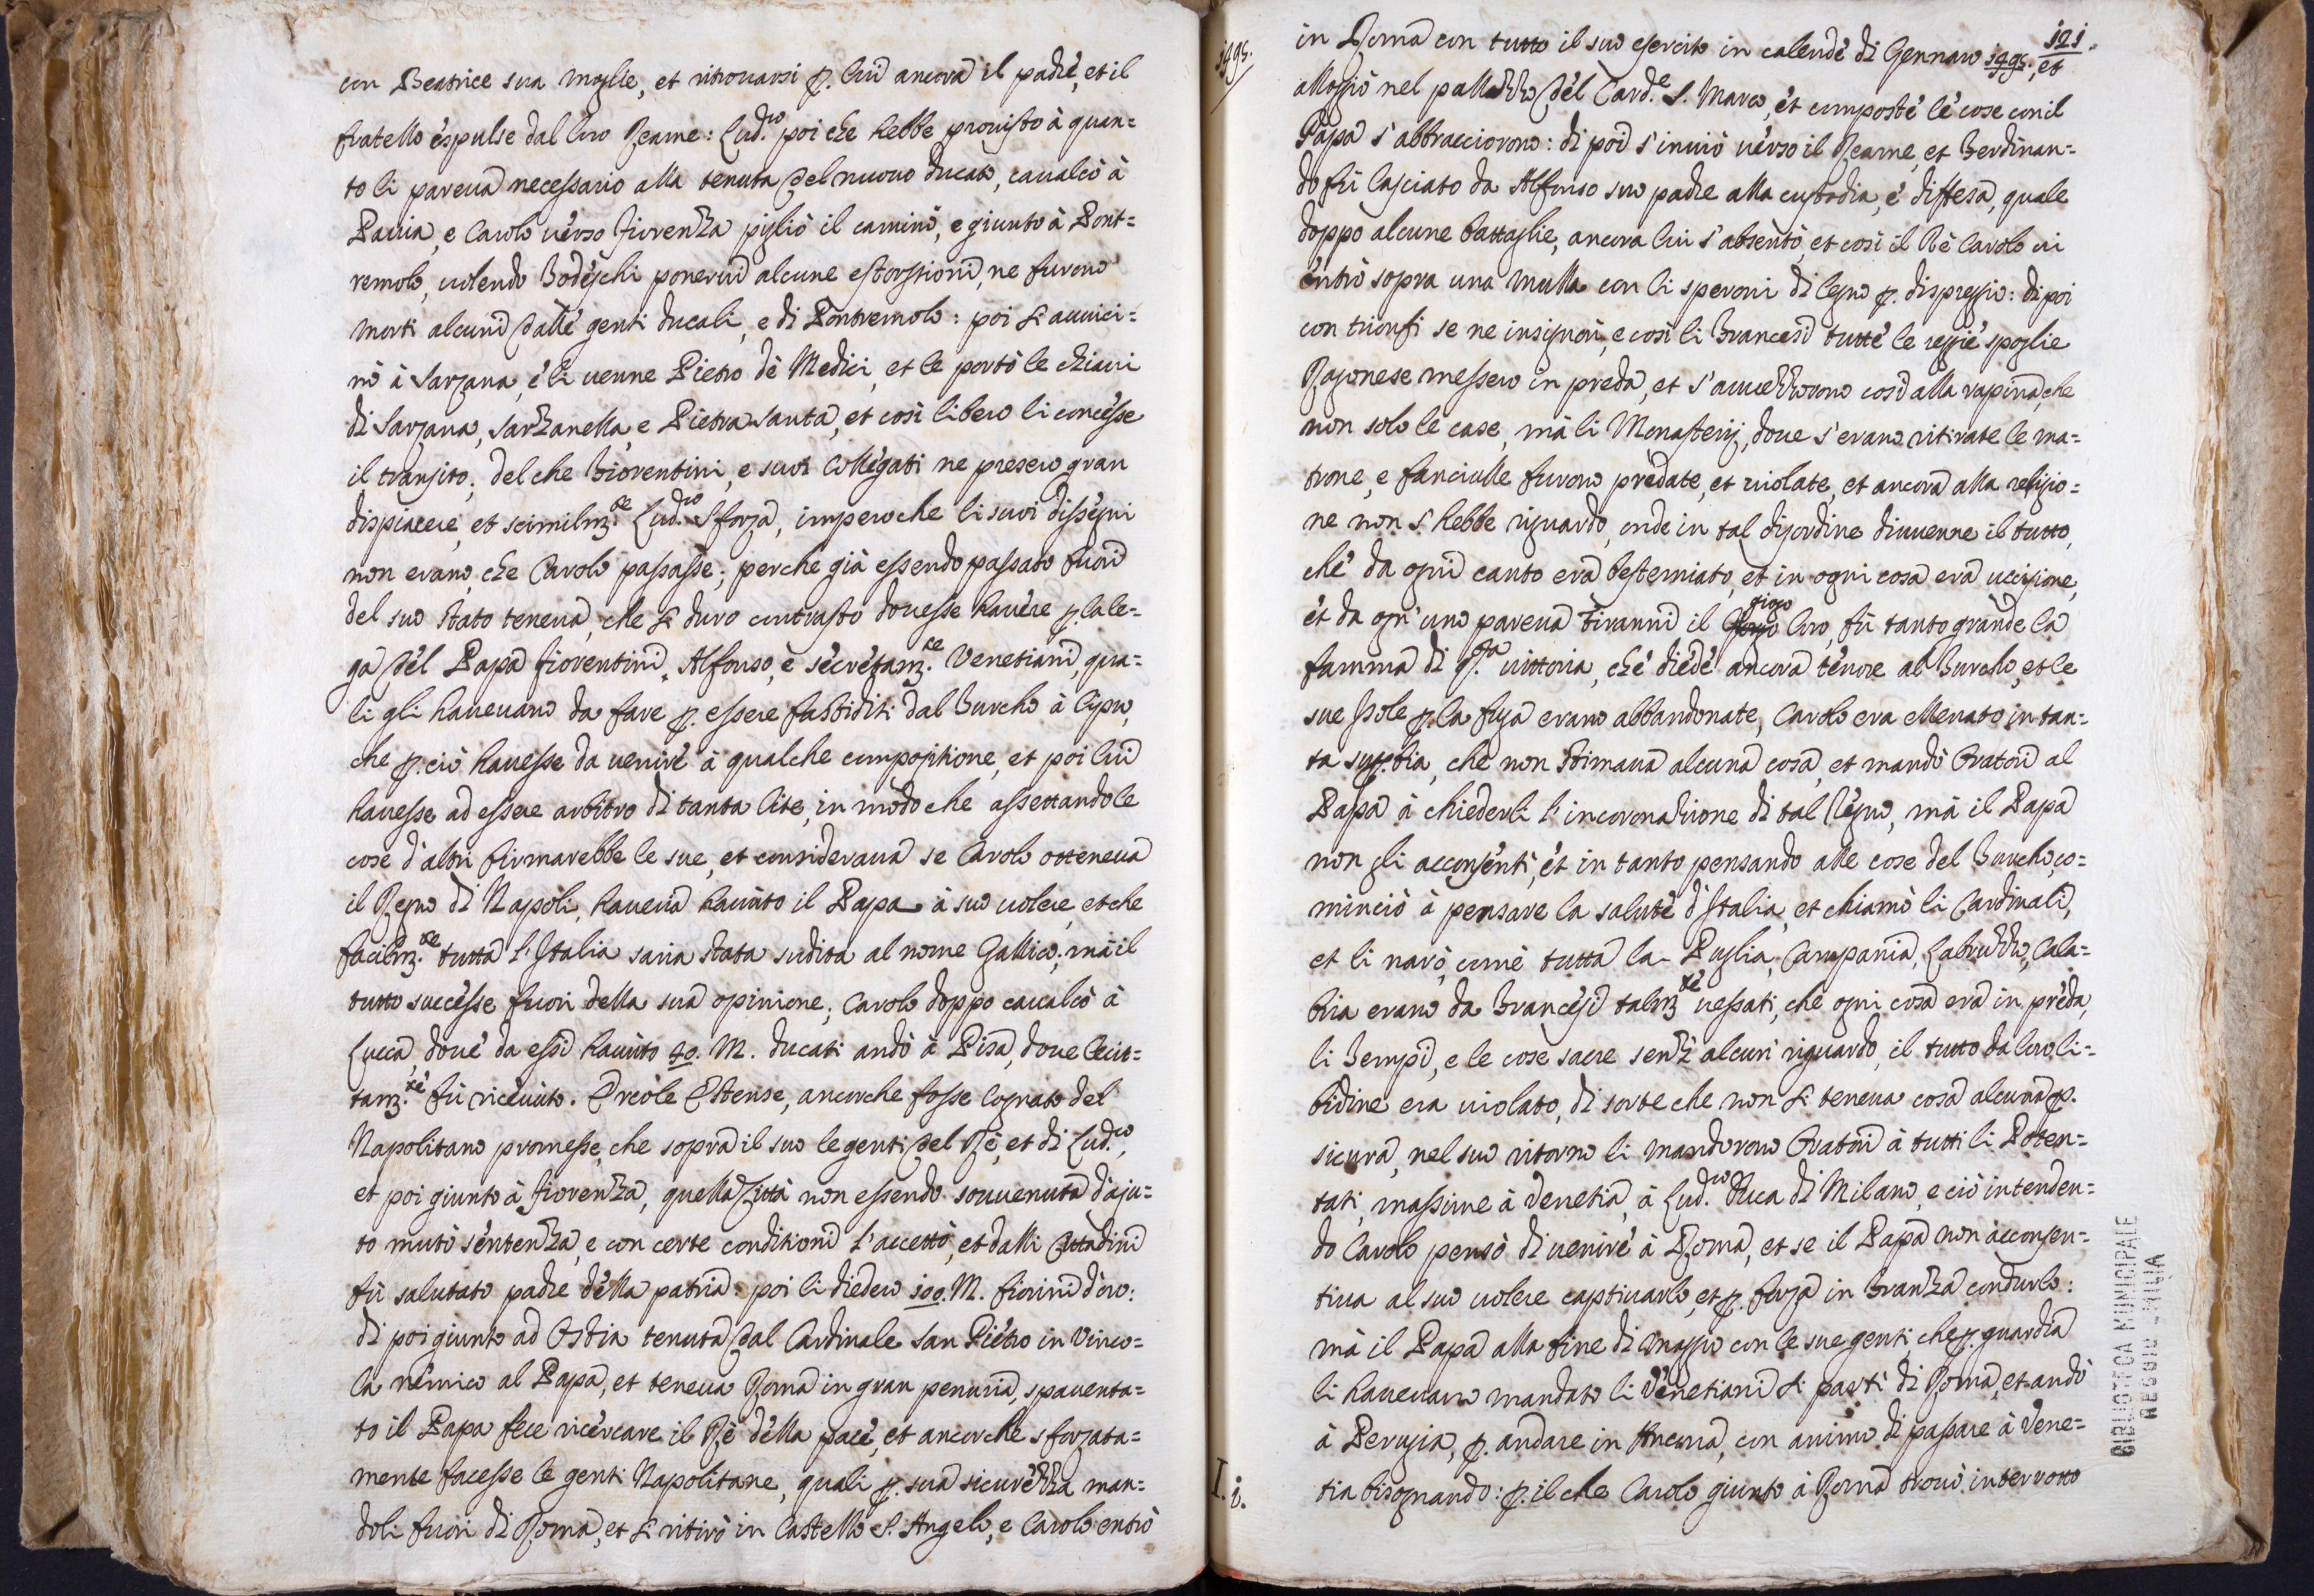 con Beatrice sua moglie, et ritrouarsi p. lui ancora il padre, et il
fratello espulse dal loro Reame: Lud.co poi che hebbe prouisto à quan=
to li pareua necessario alla tenuta del nuouo ducato, caualcò à
Pauia, e Carolo uerso Fiorenza pigliò il camino, e giunto à Pont=
remolo, uolendo Todeschi ponerui alcune estorsioni, ne furono
morti alcuni dalle genti ducali, e di Pontremolo: poi si auuici=
nò à Sarzana, e li uenne Pietro de Medici, et le portò le chiaui
di Sarzana, Sarzanella, e Pietra Santa, et così libero li concesse
il transito; del che Fiorentini, e suoi Collegati ne presero gran
dispiacere, et scimilm.te Lud.co Sforza, impero che li suoi dissegni
non erano, che Carolo passasse; perche già essendo passato fuori
del suo stato teneua, che si duro contrasto douesse hauere p. la le=
ga del Papa Fiorentini, Alfonso, e secretam.te Venetiani, qua=
li gli haueuano da fare p. essere fastiditi dal Turcho à Cipro,
che p. ciò hauesse da uenire à qualche compositione, et poi lui
hauesse ad essere arbitro di tanta lite, in modo che assettando le
cose d'altri firmarebbe le sue, et consideraua se Carolo otteneua
il Regno di Napoli, haueua hauuto il Papa à suo uolere, et che
facilm.te tutta l'Italia saria stata sudita al nome Gallico; mà il
tutto successe fuori della sua opinione; Carolo doppo caualcò à
Lucca, doue da essi hauuto 40. M. ducati andò à Pisa, doue lieta=
tam.te fù riceuuto. Ercole Estense, ancorche fosse Cognato del
Napolitano promesse, che sopra il suo le genti del Rè, et di Lud.co,
et poi giunto à Fiorenza, quella Città non essendo souuenuta d'aju=
to mutò sentenza, e con certe conditioni l'accettò, et dalli Cittadini
fù salutato padre della patria: poi li diedero 100. M. fiorini d'oro:
di poi giunto ad Ostia tenuta dal Cardinale San Pietro in Vinco=
la nemico al Papa, et teneua Roma in gran penuria, spauenta=
to il Papa fece ricercare il Rè della pace, et ancorche sforzata=
mente facesse le genti Napolitane, quali p. sua sicurezza man=
doli fuori di Roma, et si ritirò in Castello S. Angelo, e Carolo entrò
1495.
121.
in Roma con tutto il suo esercito in calende di Gennaro 1495, et
alloggiò nel pallazzo del Card.e S. Marco, et composte le cose con il
Papa s'abbracciorono: di poi s'inuiò uerso il Reame, et Ferdinan=
do fù lasciato da Alfonso suo padre alla custodia, e diffesa, quale
doppo alcune battaglie, ancora lui s'absentò, et così il Rè Carolo ui
entrò sopra una mulla con li speroni di legno p. dispregio: di poi
con trionfi se ne insignorì, e così li Francesi tutte le reggie spoglie
Ragonese messero in preda, et s'auuezzorono così alla rapina, che
non solo le case, mà li Monasterij, doue s'erano ritirate le ma=
trone, e fanciulle furono predate, et uiolate, et ancora alla religio=
ne non s'hebbe riguardo, onde in tal disordine diuuenne il tutto,
che da ogni canto era bestemiato, et in ogni cosa era uccisione,
et da ogn'uno pareua tiranni il giogo loro, fù tanto grande la
famma di q.ta uittoria, che diede ancora terrore al Turcho, et le
sue Isole p. la fuga erano abbandonate, Carolo era elleuato in tan=
ta sup.bia, che non stimaua alcuna cosa, et mandò Oratori al
Papa à chiederli l'incoronazione di tal Regno, mà il Papa
non gli acconsentì, et in tanto pensando alle cose del Turcho, co=
minciò à pensare la salute d'Italia, et chiamò li Cardinali,
et li narò, come tutta la Puglia, Campania, Labruzzo, Cala=
bria erano da Francesi talm.te uessati, che ogni cosa era in preda,
li Tempi, e le cose sacre senz'alcun riguardo, il tutto da loro li=
bidine era uiolato, di sorte che non si teneua cosa alcuna p.
sicura, nel suo ritorno li mandorono Oratori à tutti li Poten=
tati, massime à Venetia, à Lud.co Duca di Milano, e ciò intenden=
do Carolo pensò di uenire à Roma, et se il Papa non acconsen=
tiua al suo uolere captiuarlo, et p. forza in Franza condurlo:
mà il Papa alla fine di Maggio con le sue genti, che p. guardia
li haueuano mandato li Venetiani si partì di Roma, et andò
à Perugia, p. andare in Ancona, con animo di passare à Vene=
tia bisognando: p. il che Carolo giunto à Roma trouò interrotto
I. i.
BIBLIOTECA MUNICIPALE
REGGIO EMILIA